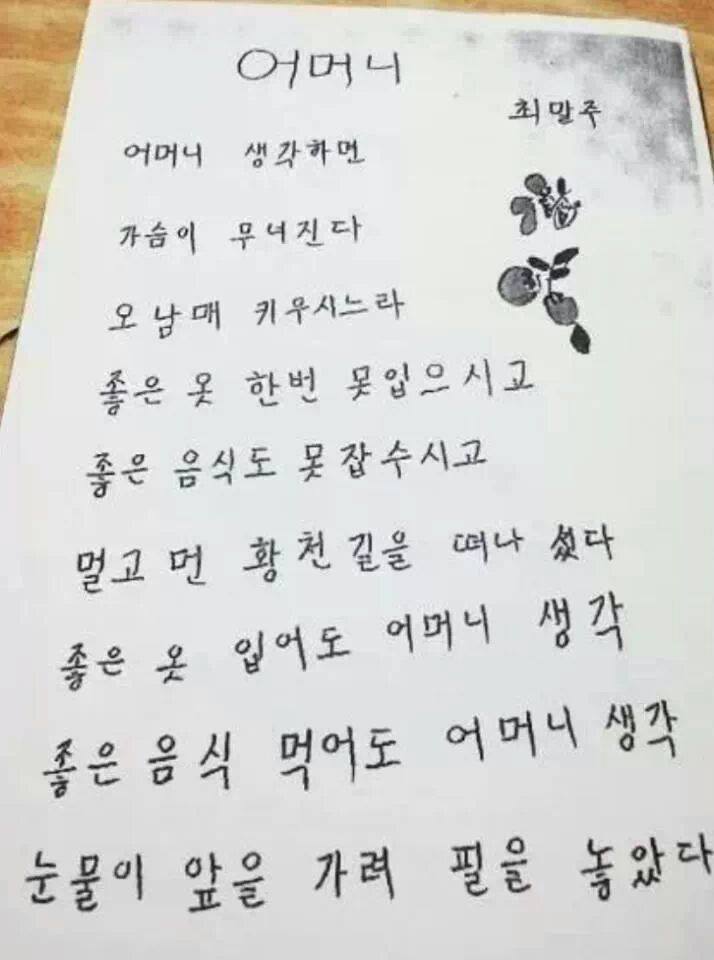 어머니
최말주
어머니 생각하면
가슴이 무너진다
오남매 키우시느라
좋은 옷 한번 못입으시고
좋은 음식도 못잡수시고
멀고 먼 황천길을 떠나 섰다
좋은 옷 입어도 어머니 생각
좋은 음식 먹어도 어머니 생각
눈물이 앞을 가려 필을 놓았다